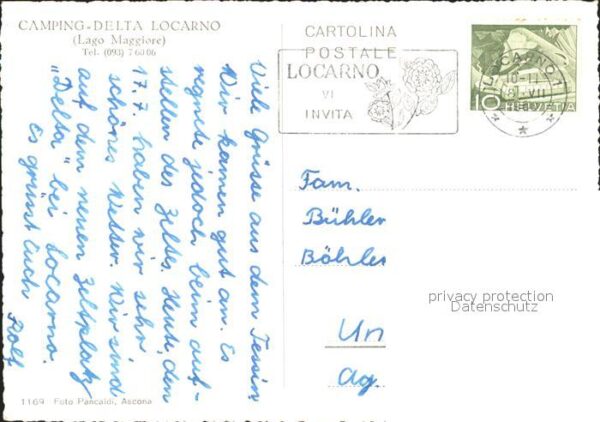 CAMPING-DELTA LOCARNO
(Lago Maggiore)
Tel. (093) 7 60 06
Viele Grüsse aus dem Tessin.
Wir kamen gut an. Es
regnete jedoch beim auf-
stellen des Zeltes. Heute, den
17. 7. haben wir sehr
schönes Wetter. Wir sind
auf dem neuen Zeltplatz
"Delta" bei Locarno.
Es grüsst Euch
Rolf
1169 Foto Pancaldi, Ascona
CARTOLINA
POSTALE
LOCARNO
VI
INVITA
LOCARNO 1
10-11
VII
10 HELVETIA
Fam.
Bühler
Böhles
Un
Ag.
privacy protection
Datenschutz